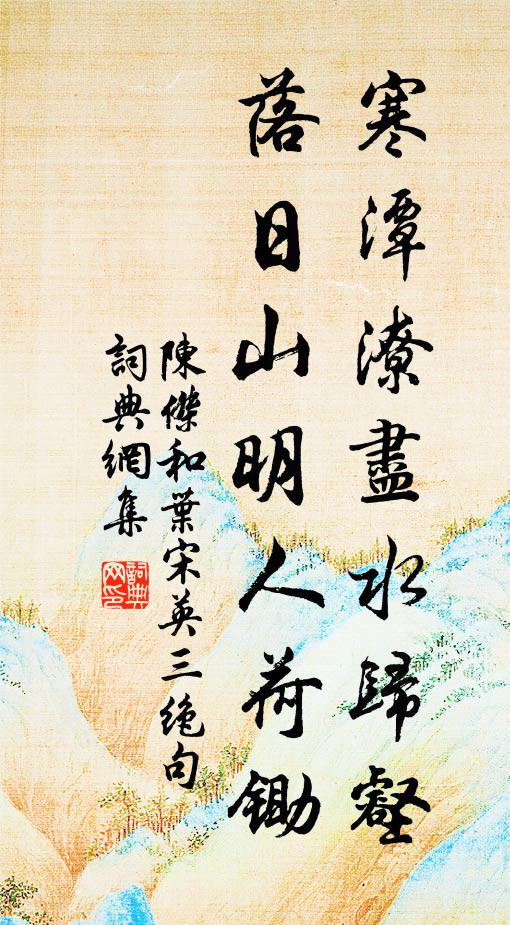 寒潭潦盡水歸壑
落日山明人荷鋤
陳傑和葉宋英三絶句
詞典網集
詞典网印